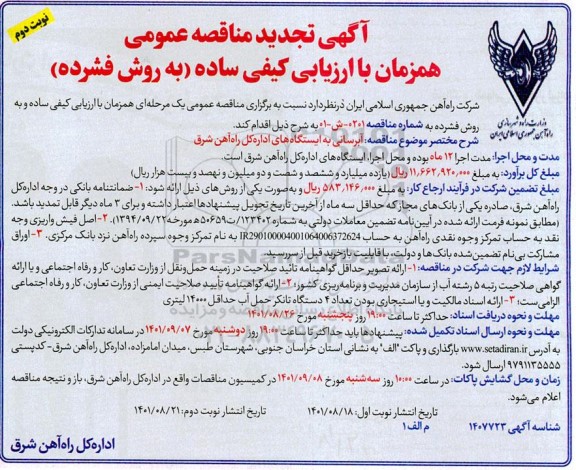 نوبت دوم
آگهی تجدید مناقصه عمومی
همزمان با ارزیابی کیفی ساده (به روش فشرده)
وزارت راه و شهرسازی
راه‌آهن جمهوری اسلامی ایران
شرکت راه‌آهن جمهوری اسلامی ایران درنظردارد نسبت به برگزاری مناقصه عمومی یک مرحله‌ای همزمان با ارزیابی کیفی ساده و به
روش فشرده به شماره مناقصه ۰۲۰۱-ش-۰۱ به شرح ذیل اقدام کند.
شرح مختصر موضوع مناقصه: آبرسانی به ایستگاه‌های اداره‌کل راه‌آهن شرق
مدت و محل اجرا: مدت اجرا ۱۲ ماه بوده و محل اجرا، ایستگاه‌های اداره‌کل راه‌آهن شرق است.
مبلغ کل برآورد: به مبلغ ۱۱,۶۶۲,۹۲۰,۰۰۰ ریال (یازده میلیارد و ششصد و شصت و دو میلیون و نهصد و بیست هزار ریال)
مبلغ تضمین شرکت در فرآیند ارجاع کار: به مبلغ ۵۸۳,۱۴۶,۰۰۰ ریال و به‌صورت یکی از روش‌های ذیل ارائه شود: ۱- ضمانتنامه بانکی در وجه اداره‌کل
راه‌آهن شرق، صادره یکی از بانک‌های مجاز که حداقل سه ماه از آخرین تاریخ تحویل پیشنهادها اعتبار داشته و برای ۳ ماه دیگر قابل تمدید باشد.
(مطابق نمونه فرمت ارائه شده در آیین‌نامه تضمین معاملات دولتی به شماره ۱۲۳۴۰۲/ت۵۰۶۵۹ه مورخه ۱۳۹۴/۰۹/۲۲). ۲- اصل فیش واریزی وجه
نقد به حساب تمرکز وجوه نقدی راه‌آهن به حساب IR290100004001064006372624 به نام تمرکز وجوه سپرده راه‌آهن نزد بانک مرکزی. ۳- اوراق
مشارکت بی‌نام تضمین‌شده بانک‌ها و دولت، با قابلیت بازخرید قبل از سررسید.
شرایط لازم جهت شرکت در مناقصه: ۱- ارائه تصویر حداقل گواهینامه تائید صلاحیت در زمینه حمل‌ونقل از وزارت تعاون، کار و رفاه اجتماعی و یا ارائه
گواهی صلاحیت رتبه ۵ رشته آب از سازمان مدیریت و برنامه‌ریزی کشور، ۲- ارائه گواهینامه تأیید صلاحیت ایمنی از وزارت تعاون، کار و رفاه اجتماعی
الزامی ست؛ ۳- ارائه اسناد مالکیت و یا استیجاری بودن تعداد ۴ دستگاه تانکر حمل آب حداقل ۱۴۰۰۰ لیتری
مهلت و نحوه دریافت اسناد: حداکثر تا ساعت ۱۹:۰۰ روز پنجشنبه مورخ ۱۴۰۱/۰۸/۲۶
مهلت و نحوه ارسال اسناد تکمیل شده: پیشنهادها باید حداکثر تا ساعت ۱۹:۰۰ روز دوشنبه مورخ ۱۴۰۱/۰۹/۰۷ در سامانه تدارکات الکترونیکی دولت
به آدرس www.setadiran.ir بارگذاری و پاکت "الف" به نشانی استان خراسان جنوبی، شهرستان طبس، میدان امامزاده، اداره‌کل راه‌آهن شرق - کدپستی
9791135555 ارسال شود.
زمان و محل گشایش پاکات: در ساعت ۱۰:۰۰ روز سه‌شنبه مورخ ۱۴۰۱/۰۹/۰۸ در کمیسیون مناقصات واقع در اداره‌کل راه‌آهن شرق، باز و نتیجه مناقصه
اعلام می‌شود.
تاریخ انتشار نوبت اول: ۱۴۰۱/۰۸/۱۸ تاریخ انتشار نوبت دوم: ۱۴۰۱/۰۸/۲۱
شناسه آگهی ۱۴۰۷۷۲۳ م الف ۱
اداره‌کل راه‌آهن شرق